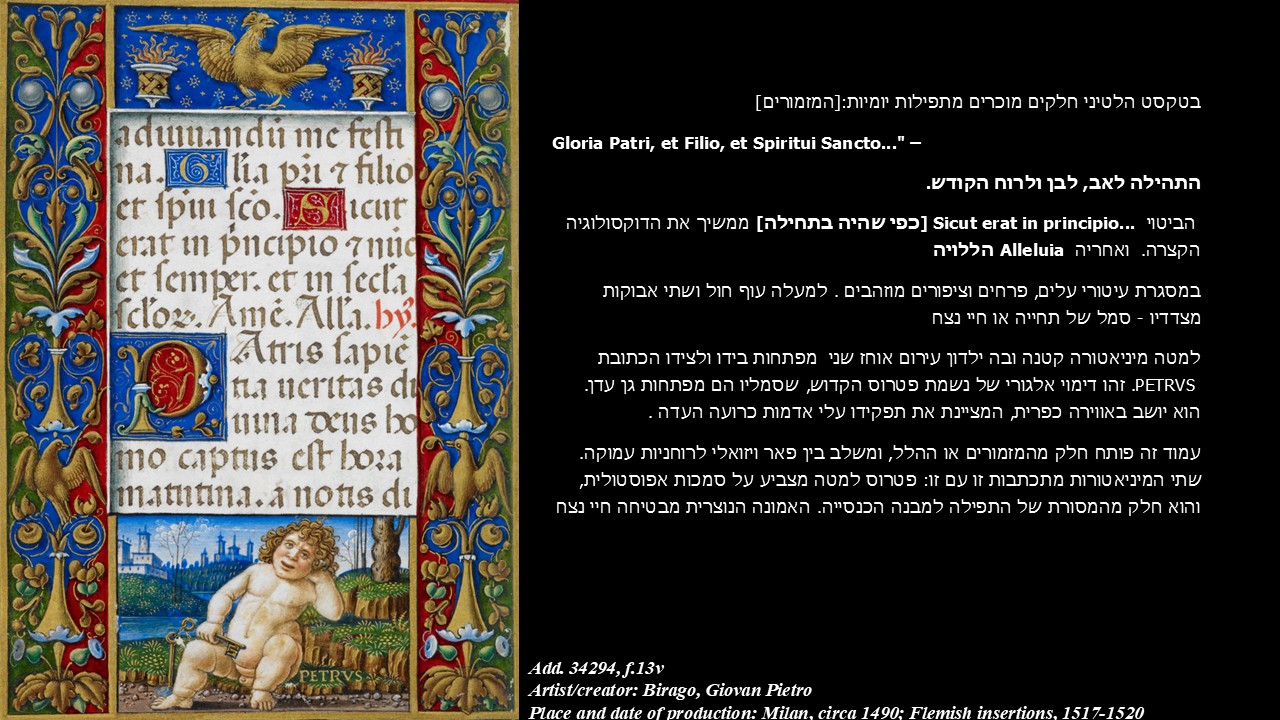 adiuuandū me festi
na. Glīa pr̄i ⁊ filio
et sp̄ui sc̄o. Sicut
erat in p̄ncipio ⁊ nūc
et semper. et in secl̄a
scl̄oꝝ. Amē. All̄a. hȳ.
Atris sapiē
P
tia ueritas di
uina deus ho
mo captus est hora
matutina. a notis di
PETRVS
בטקסט הלטיני חלקים מוכרים מתפילות יומיות:[המזמורים]
Gloria Patri, et Filio, et Spiritui Sancto..." –
התהילה לאב, לבן ולרוח הקודש.
הביטוי Sicut erat in principio... [כפי שהיה בתחילה] ממשיך את הדוקסולוגיה
הקצרה. ואחריה Alleluia הללויה
במסגרת עיטורי עלים, פרחים וציפורים מוזהבים . למעלה עוף חול ושתי אבוקות
מצדדיו - סמל של תחייה או חיי נצח
למטה מיניאטורה קטנה ובה ילדון עירום אוחז שני מפתחות בידו ולצידו הכתובת
PETRVS. זהו דימוי אלגורי של נשמת פטרוס הקדוש, שסמליו הם מפתחות גן עדן.
הוא יושב באווירה כפרית, המציינת את תפקידו עלי אדמות כרועה העדה .
עמוד זה פותח חלק מהמזמורים או ההלל, ומשלב בין פאר ויזואלי לרוחניות עמוקה.
שתי המיניאטורות מתכתבות זו עם זו: פטרוס למטה מצביע על סמכות אפוסטולית,
והוא חלק מהמסורת של התפילה למבנה הכנסייה. האמונה הנוצרית מבטיחה חיי נצח
Add. 34294, f.13v
Artist/creator: Birago, Giovan Pietro
Place and date of production: Milan, circa 1490; Flemish insertions, 1517-1520